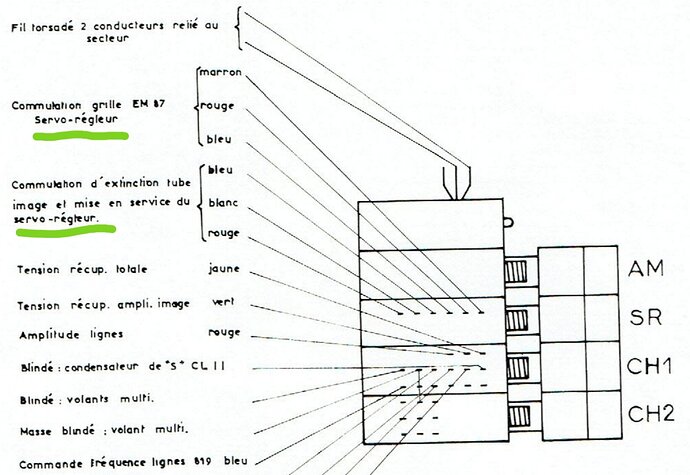 Fil torsadé 2 conducteurs relié au
secteur
marron
Commutation grille EM 87
Servo-régleur
rouge
bleu
bleu
Commutation d'extinction tube
image et mise en service du
servo-régleur.
blanc
rouge
Tension récup. totale jaune
Tension récup. ampli. image vert
Amplitude lignes rouge
Blindé : condensateur de "S" CL II
Blindé : volants multi.
Masse blindé : volant multi.
Commande fréquence lignes 819 bleu
AM
SR
CH1
CH2